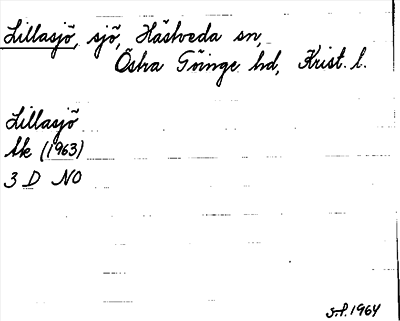 Lillasjö, sjö, Hästveda sn,
Östra Göinge hd, Krist. l.
Lillasjö
tk (1963)
3 D NO
S.P. 1964